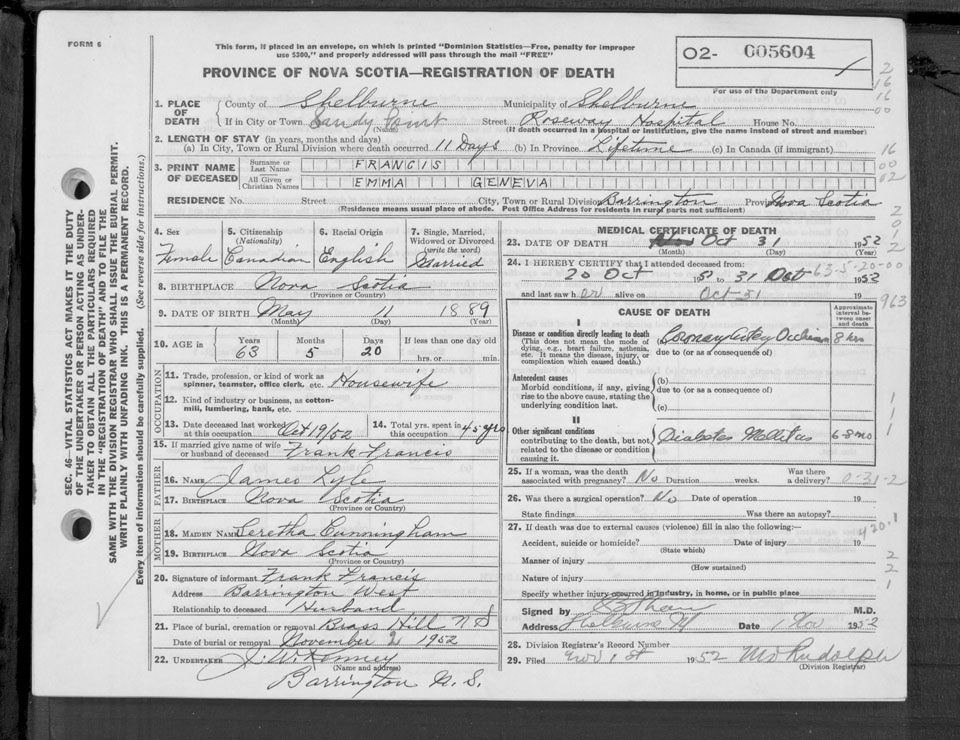 FORM 6
This form, if placed in an envelope, on which is printed "Dominion Statistics—Free, penalty for improper
use $300," and properly addressed will pass through the mail "FREE"
PROVINCE OF NOVA SCOTIA—REGISTRATION OF DEATH
O2- 005604
For use of the Department only
1. PLACE OF DEATH
County of Shelburne Municipality of Shelburne
If in City or Town Sandy Point Street Roseway Hospital House No.
(Name) (If death occurred in a hospital or institution, give the name instead of street and number)
2. LENGTH OF STAY (in years, months and days)
(a) In City, Town or Rural Division where death occurred 11 Days (b) In Province Lifetime (c) In Canada (if immigrant)
3. PRINT NAME OF DECEASED
Surname or Last Name FRANCIS
All Given or Christian Names EMMA GENEVA
RESIDENCE No. Street City, Town or Rural Division Barrington Province Nova Scotia
(Residence means usual place of abode. Post Office Address for residents in rural parts not sufficient)
4. Sex Female
5. Citizenship (Nationality) Canadian
6. Racial Origin English
7. Single, Married, Widowed or Divorced (write the word) Married
8. BIRTHPLACE Nova Scotia
(Province or Country)
9. DATE OF BIRTH May 11 1889
(Month) (Year)
10. AGE in Years 63 Months 5 Days 20 If less than one day old
hrs. or min.
OCCUPATION
11. Trade, profession, or kind of work as spinner, teamster, office clerk. etc. Housewife
12. Kind of industry or business, as cotton-mill, lumbering, bank, etc.
13. Date deceased last worked at this occupation Oct 19/52
14. Total yrs. spent in this occupation 45 yrs
15. If married give name of wife or husband of deceased Frank Francis
FATHER
16. NAME James Lyle
17. BIRTHPLACE Nova Scotia
(Province or Country)
MOTHER
18. MAIDEN NAME Seretha Cunningham
19. BIRTHPLACE Nova Scotia
(Province or Country)
20. Signature of informant Frank Francis
Address Barrington West
Relationship to deceased Husband
21. Place of burial, cremation or removal Brass Hill N S
Date of burial or removal November 2 1952
22. UNDERTAKER J. W. Kenney
(Name and address)
Barrington N. S.
MEDICAL CERTIFICATE OF DEATH
23. DATE OF DEATH Oct 31 1952
(Month) (Day) (Year)
24. I HEREBY CERTIFY that I attended deceased from:
20 Oct 19 to 31 Oct 1952
63-5-20-00
and last saw her alive on Oct 31 19
963
CAUSE OF DEATH
Approximate interval between onset and death
I
Disease or condition directly leading to death
(This does not mean the mode of dying, e.g., heart failure, asthenia, etc. It means the disease, injury, or complication which caused death.)
(a) Coronary Artery Occlusion 8 hrs
due to (or as a consequence of)
Antecedent causes
Morbid conditions, if any, giving rise to the above cause, stating the underlying condition last.
(b)
due to (or as a consequence of)
(c)
II
Other significant conditions
contributing to the death, but not related to the disease or condition causing it.
Diabetes Mellitus 6-8 mo
25. If a woman, was the death associated with pregnancy? No Duration weeks. Was there a delivery?
0-31-2
26. Was there a surgical operation? No Date of operation 19
State findings Was there an autopsy?
27. If death was due to external causes (violence) fill in also the following:—
420.1
Accident, suicide or homicide? Date of injury 19
(State which)
Manner of injury
(How sustained)
Nature of injury
Specify whether injury occurred in industry, in home, or in public place
Signed by M.D.
Address Shelburne NS Date 1 Nov 1952
28. Division Registrar's Record Number
29. Filed Nov 1st 1952 M Rudolph
(Division Registrar)
SEC. 46—VITAL STATISTICS ACT MAKES IT THE DUTY
OF THE UNDERTAKER OR PERSON ACTING AS UNDERTAKER TO OBTAIN ALL THE PARTICULARS REQUIRED
IN THE "REGISTRATION OF DEATH" AND TO FILE THE
SAME WITH THE DIVISION REGISTRAR WHO SHALL ISSUE THE BURIAL PERMIT.
WRITE PLAINLY WITH UNFADING INK. THIS IS A PERMANENT RECORD.
Every item of information should be carefully supplied. (See reverse side for instructions.)